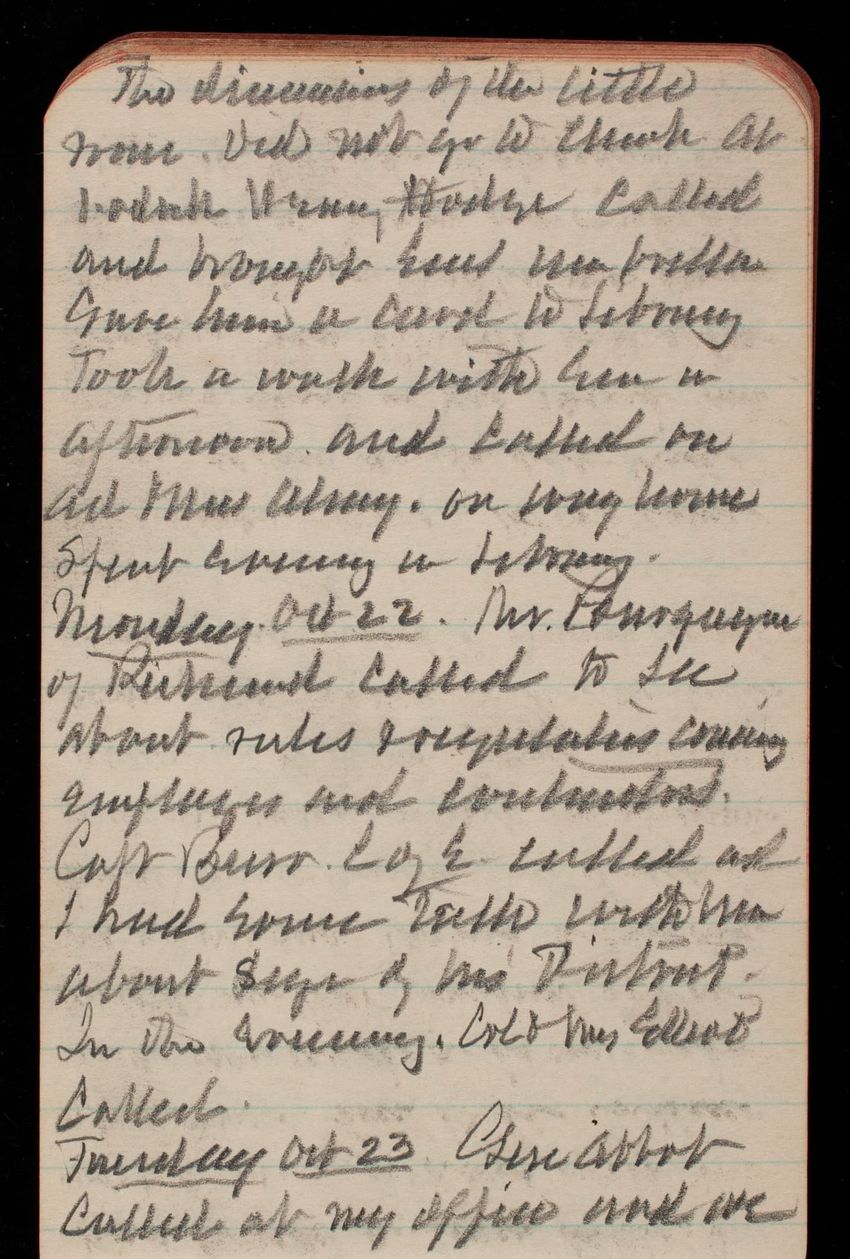 The dimensions of the little
room. Did not go to church. At
Henry Hodge called
and brought
Gave him a card to Library
Took a walk with him in
afternoon. and called on
Mrs Almy. on way home
Spent evening in Library.
Monday. Oct 22. Mr.
of Richmond called to see
about rules & regulations
employees and contractors.
Capt Burr. C of E. called and
I had some talk with him
about size of his District.
In the evening. Col & Mrs Elliot
called.
Tuesday Oct 23 Genl Abbot
called at my office and we